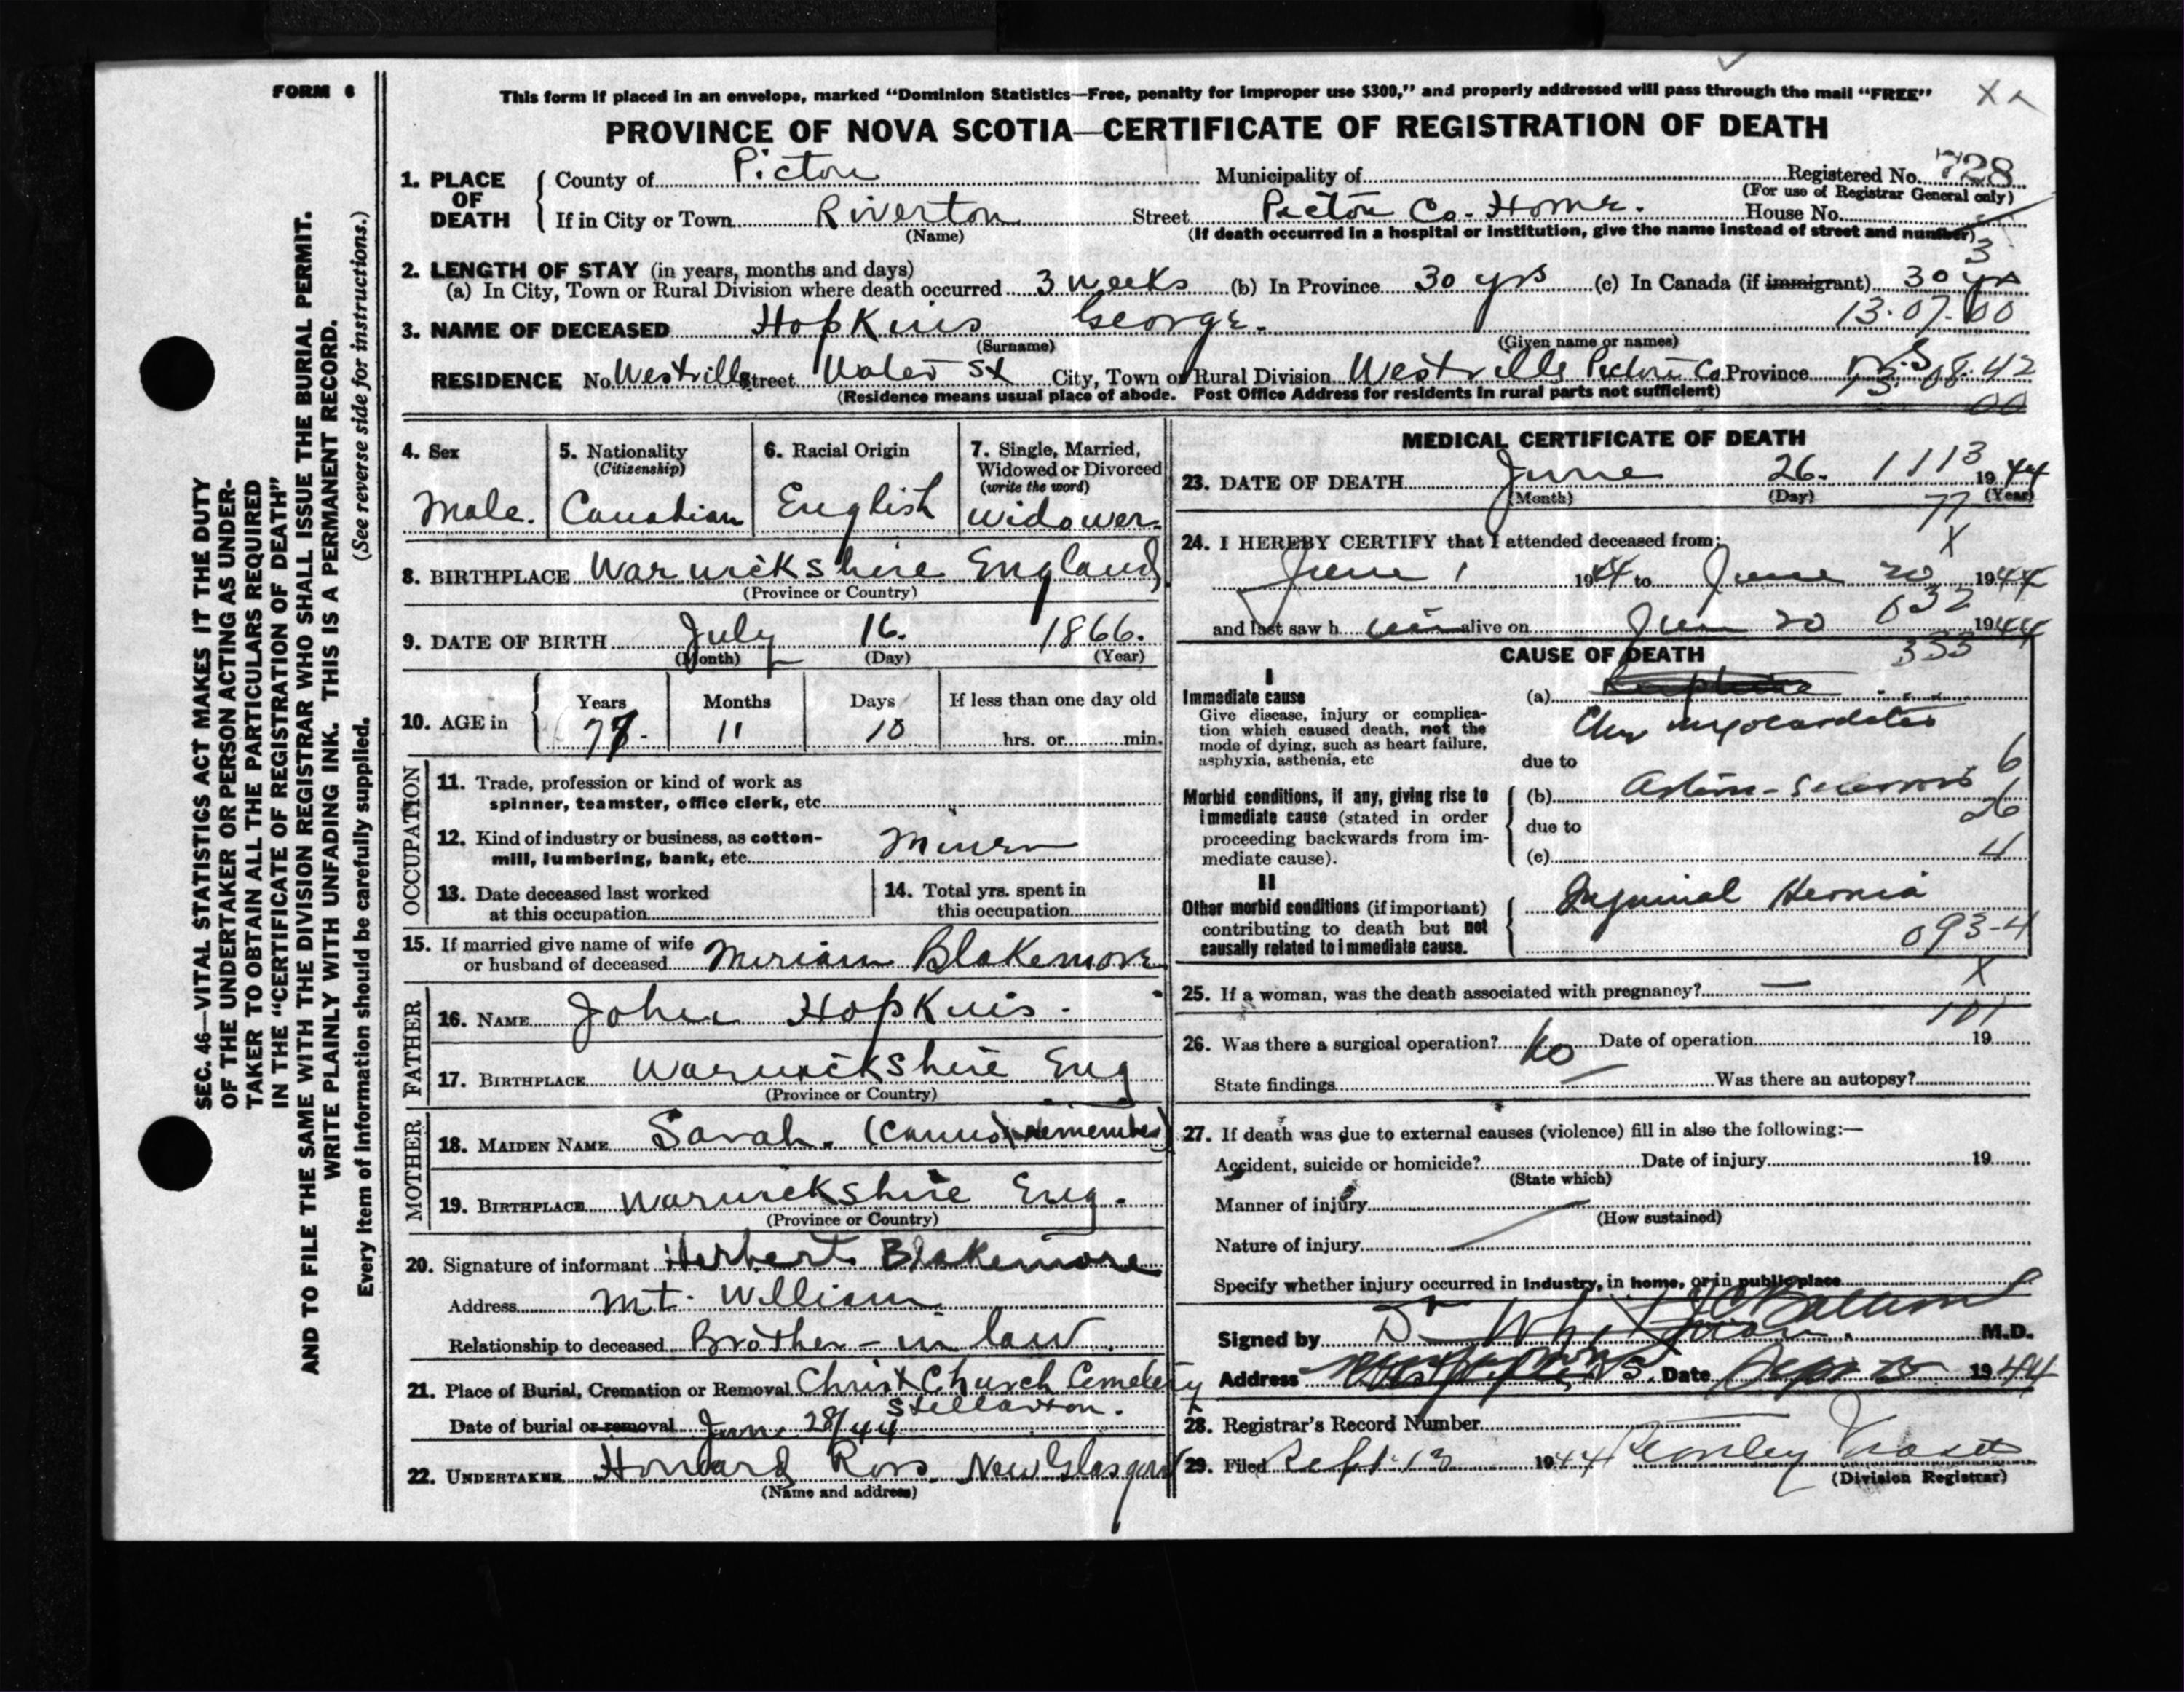 FORM 6
This form if placed in an envelope, marked "Dominion Statistics—Free, penalty for improper use $300," and properly addressed will pass through the mail "FREE"
PROVINCE OF NOVA SCOTIA—CERTIFICATE OF REGISTRATION OF DEATH
1. PLACE OF DEATH County of Pictou Municipality of Registered No. 728
(For use of Registrar General only)
If in City or Town Riverton Street Pictou Co. Home. House No.
(Name) (If death occurred in a hospital or institution, give the name instead of street and number)
3
2. LENGTH OF STAY (in years, months and days)
(a) In City, Town or Rural Division where death occurred 3 weeks (b) In Province 30 yrs (c) In Canada (if immigrant) 30 yrs
3. NAME OF DECEASED Hopkins George. 13.07.00
(Surname) (Given name or names)
RESIDENCE No. Westville Street Water St City, Town or Rural Division Westville Pictou Co Province N.S 13.08.42
(Residence means usual place of abode. Post Office Address for residents in rural parts not sufficient) 00
SEC. 46—VITAL STATISTICS ACT MAKES IT THE DUTY
OF THE UNDERTAKER OR PERSON ACTING AS UNDER-
TAKER TO OBTAIN ALL THE PARTICULARS REQUIRED
IN THE "CERTIFICATE OF REGISTRATION OF DEATH"
AND TO FILE THE SAME WITH THE DIVISION REGISTRAR WHO SHALL ISSUE THE BURIAL PERMIT.
WRITE PLAINLY WITH UNFADING INK. THIS IS A PERMANENT RECORD.
Every item of information should be carefully supplied. (See reverse side for instructions.)
4. Sex
Male.
5. Nationality
(Citizenship)
Canadian
6. Racial Origin
English
7. Single, Married,
Widowed or Divorced
(write the word)
Widower.
8. BIRTHPLACE Warwickshire England
(Province or Country)
9. DATE OF BIRTH July 16. 1866.
(Month) (Day) (Year)
10. AGE in Years Months Days If less than one day old
77. 11 10 hrs. or min.
OCCUPATION
11. Trade, profession or kind of work as
spinner, teamster, office clerk, etc.
12. Kind of industry or business, as cotton-
mill, lumbering, bank, etc. Miner
13. Date deceased last worked
at this occupation
14. Total yrs. spent in
this occupation
15. If married give name of wife
or husband of deceased Miriam Blakemore
FATHER
16. NAME John Hopkins.
17. BIRTHPLACE Warwickshire Eng
(Province or Country)
MOTHER
18. MAIDEN NAME Sarah. (cannot remember)
19. BIRTHPLACE Warwickshire Eng.
(Province or Country)
20. Signature of informant Herbert Blakemore
Address Mt. William
Relationship to deceased Brother-in law
21. Place of Burial, Cremation or Removal Christ Church Cemetery
Stellarton.
Date of burial or removal June 28/44
22. UNDERTAKER Howard Ross. New Glasgow
(Name and address)
MEDICAL CERTIFICATE OF DEATH
23. DATE OF DEATH June 26. 1113 1944
(Month) (Day) (Year)
77
24. I HEREBY CERTIFY that I attended deceased from: X
June 1 1944 to June 20 1944
032
and last saw him alive on June 20 1944
CAUSE OF DEATH 333
I
Immediate cause
Give disease, injury or complica-
tion which caused death, not the
mode of dying, such as heart failure,
asphyxia, asthenia, etc
(a)
Chr myocarditis
due to 6
Morbid conditions, if any, giving rise to
immediate cause (stated in order
proceeding backwards from im-
mediate cause).
(b) Arterio-sclerosis
26
due to
(c) 4
II
Other morbid conditions (if important)
contributing to death but not
causally related to immediate cause.
Inguinal Hernia
093-4
X
25. If a woman, was the death associated with pregnancy? —
101
26. Was there a surgical operation? No Date of operation 19
State findings Was there an autopsy?
27. If death was due to external causes (violence) fill in also the following:—
Accident, suicide or homicide? Date of injury 19
(State which)
Manner of injury
(How sustained)
Nature of injury
Specify whether injury occurred in industry, in home, or in public place
Signed by Dr M.D.
Address N.S. Date 1944
28. Registrar's Record Number
29. Filed Sept. 13 1944
(Division Registrar)